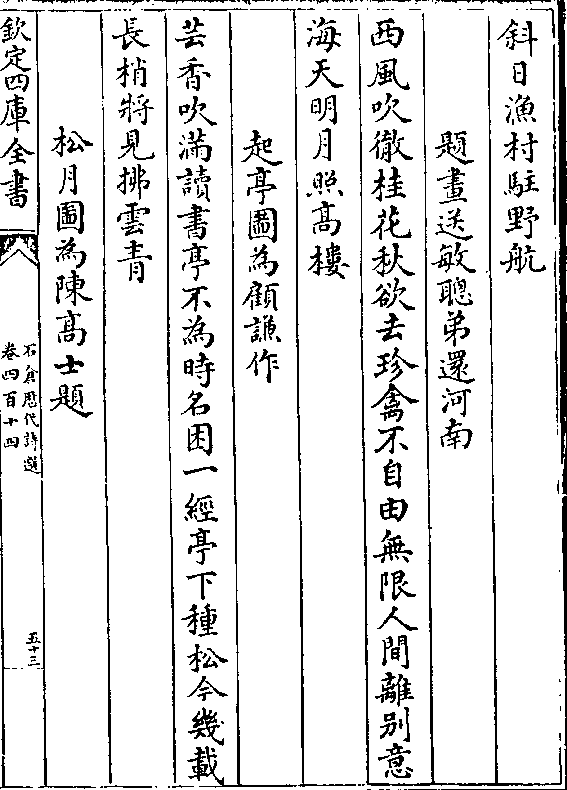 斜日漁村駐野航
題畫送敏聰弟還河南
西風吹徹桂花秋欲去珍禽不自由無限人間離別意
海天明月照高樓
起亭圖為顧謙作
芸香吹滿讀書亭不為時名困一經亭下種松今幾載
長梢將見拂雲青
松月圖為陳高士題
欽定四庫全書
石倉歷代詩選
卷四百十四
五十三